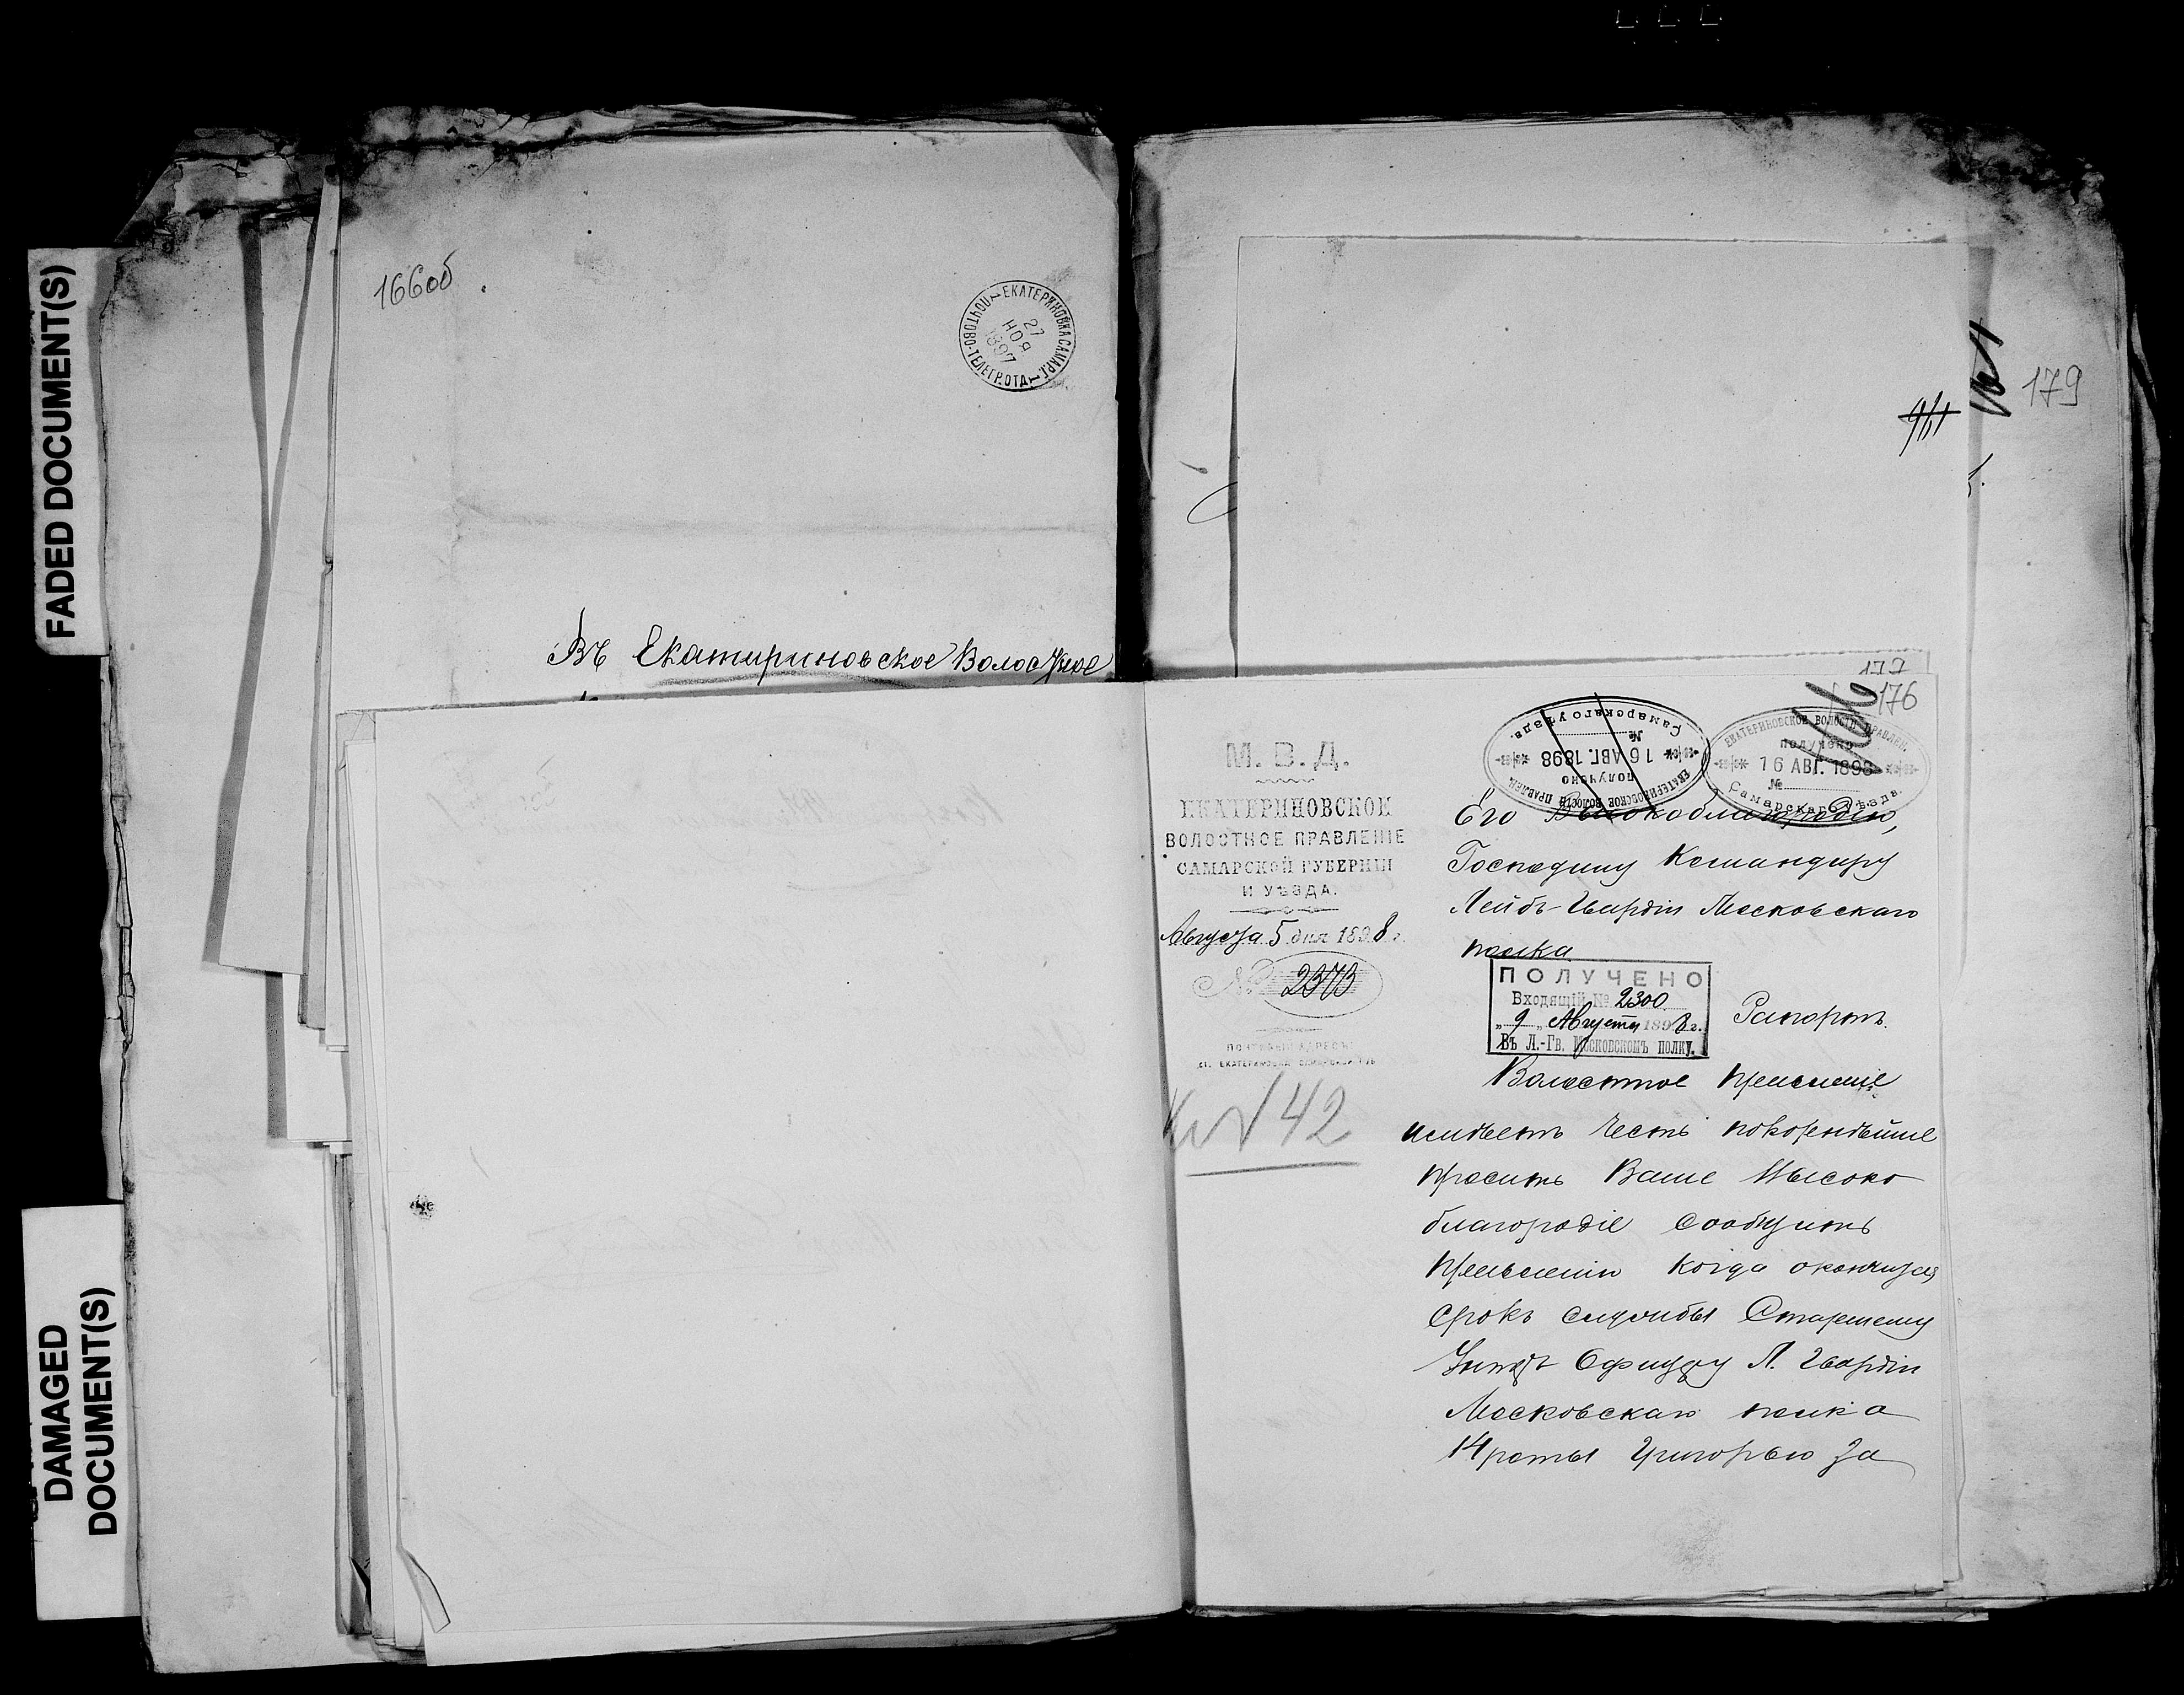 FADED DOCUMENT(S)
DAMAGED
DOCUMENT(S)
166об
ЕКАТЕРИНОВКА САМАР. Г.
ПОЧТОВО-ТЕЛЕГР. ОТД.
27
НОЯ
1897
Въ Екатериновское Волостное
179
177
176
М. В. Д.
ЕКАТЕРИНОВСКОЕ
ВОЛОСТНОЕ ПРАВЛЕНІЕ
САМАРСКОЙ ГУБЕРНІИ
И УѢЗДА.
Августа 5 дня 1898 г.
№ 2373
ПОЧТОВЫЙ АДРЕСЪ:
ЕКАТЕРИНОВКА
К № 42
ЕКАТЕРИНОВСКОЕ ВОЛОСТН. ПРАВЛЕН.
получено
16 АВГ. 1898
№
Самарскаго уѣзда.
ЕКАТЕРИНОВСКОЕ ВОЛОСТН. ПРАВЛЕН.
получено
16 АВГ. 1898
№
Самарскаго уѣзда.
Его Высокоблагородію,
Господину Командиру
Лейбъ-Гвардіи Московскаго
полка
ПОЛУЧЕНО
Входящій № 2300
„9„ Августа 1898 г.
Въ Л.-Гв. Московскомъ полку.
Рапортъ.
Волостное Правленіе
имѣетъ честь покорнѣйше
просить Ваше Высоко
благородіе сообщить
Правленію когда окончится
срокъ службы Старшему
Унтеръ Офицеру Л. Гвардіи
Московскаго полка
14 роты Григорью За